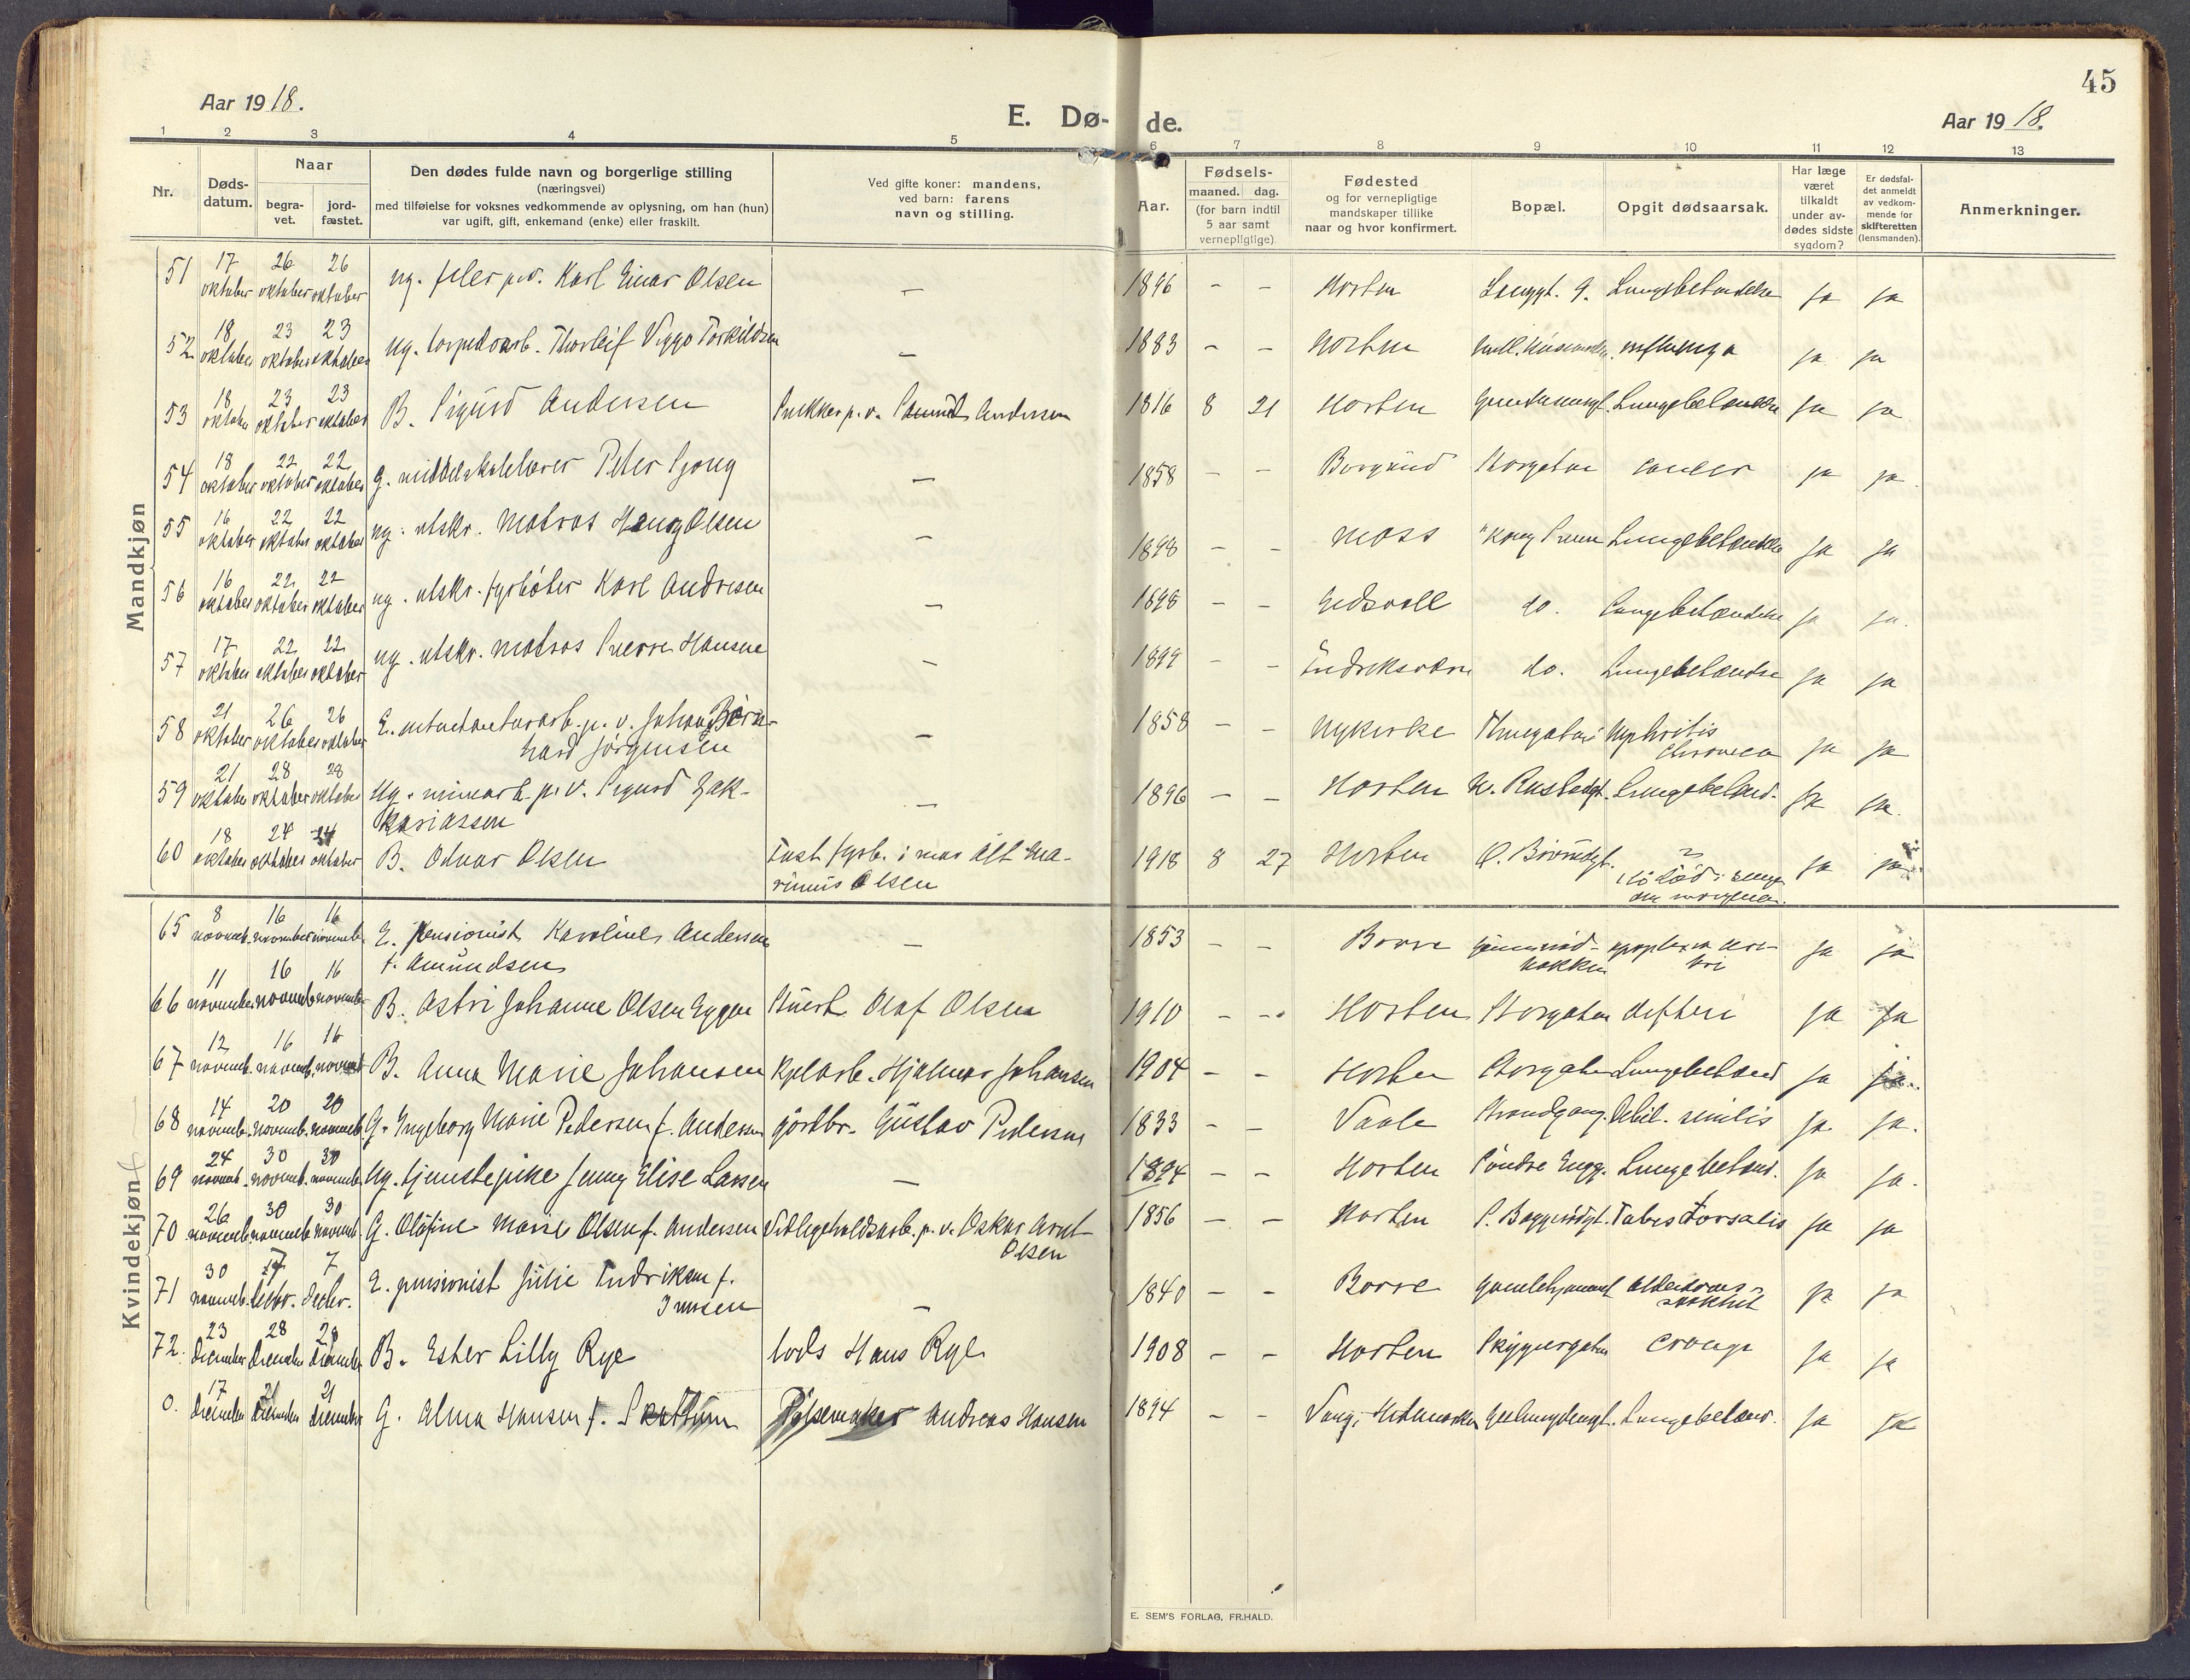 45
Aar 1918.
E. Dø-
de.
Aar 1918.
1 2 3 4 5 6 7 8 9 10 11 12 13
Nr.
Døds-
datum.
Naar
begra-
vet.
jord-
fæstet.
Den dødes fulde navn og borgerlige stilling
(næringsvei)
med tilføielse for voksnes vedkommende av oplysning, om han (hun)
var ugift, gift, enkemand (enke) eller fraskilt.
Ved gifte koner: mandens,
ved barn: farens
navn og stilling.
Aar.
Fødsels-
maaned. dag.
(for barn indtil
5 aar samt
vernepligtige)
Fødested
og for vernepligtige
mandskaper tillike
naar og hvor konfirmert.
Bopæl.
Opgit dødsaarsak.
Har læge
været
tilkaldt
under av-
dødes sidste
sygdom?
Er dødsfal-
det anmeldt
av vedkom-
mende for
skifteretten
(lensmanden).
Anmerkninger.
Mandkjøn
51 17 oktober 26 oktober 26 oktober ug. filer p.v. Karl Einar Olsen — 1896 - - Horten Langgt. 9. Lungebetændelse ja ja
52 18 oktober 23 oktober 23 oktober ug. torpedoarb. Thorleif Viggo Torkildsen — 1883 - - Horten influenza ja ja
53 18 oktober 23 oktober 23 oktober B. Sigurd Andersen Snekker p.v. Andersen 1816 8 21 Horten Lungebetændelse ja ja
54 18 oktober 22 oktober 22 oktober G. middelskolelærer Peter Sjong — 1858 - - Borgund Storgaten cancer ja ja
55 16 oktober 22 oktober 22 oktober ug. utskr. matros Haug Olsen — 1898 - - Moss "Kong Sverre Lungebetændelse ja ja
56 16 oktober 22 oktober 22 oktober ug. utskr. fyrbøter Karl Andresen — 1898 - - Eidsvoll do. Lungebetændelse ja ja.
57 17 oktober 22 oktober 22 oktober ug. utskr. matros Sverre Hansen — 1899 - - do. Lungebetændse ja ja
58 21 oktober 26 oktober 26 oktober E. intendanturarb. p.v. Johan Bern-
hard Jørgensen — 1858 - - Nykirke Nephritis
chronica ja ja
59 21 oktober 28 oktober 28 oktober Ug. minearb. p.v. Sigurd Zak-
kariassen — 1896 - - Horten N. Rustadgt. Lungebetænd. ja ja.
60 18 oktober 24 oktober 24 oktober B. Odvar Olsen Fast fyrb. i mar. Alf Ma-
rinius Olsen 1918 8 27 Horten ?
død i sengen
om morgenen. ja ja
Kvindekjøn
65 8 novemb. 16 november 16 novemb. E. pensionist Karoline Andersen
f. Amundsen — 1853 - - Borre apoplexia cere-
bri ja ja
66 11 november 16 novemb. 16 november B. Astri Johanne Olsen Eggen Stuert Olaf Olsen 1910 - - Horten Storgaten difteri ja ja
67 12 novemb. 16 novemb. 16 novemb. B. Anna Marie Johansen Kjelarb. Hjalmar Johansen 1904 - - Horten Storgaten Lungebetænd ja ja.
68 14 novemb. 20 novemb. 20 novemb. G. Ingeborg Marie Pedersen f. Andersen gårdbr. Gustav Pedersen 1833 - - Vaale Strandgang. Debil. senilis ja ja.
69 24 novemb. 30 novemb. 30 novemb. Ug. tjenestepike Jenny Elise Larsen — 1894 - - Horten Søndre Engg. Lungebetænd. ja ja.
70 26 novemb. 30 novemb. 30 novemb. G. Olufine Marie Olsen f. Andersen Vedligeholdsarb. p.v. Oskar Arnt
Olsen 1856 - - Horten P. Bøggersdgt. Tabes dorsalis ja ja
71 30 novemb. 7 decbr. 7 decbr. E. pensionist Julie Indriksen f.
Iversen — 1840 - - Borre Gamlehjemmet Alderdoms-
svakhet ja ja
72. 23 December 28 December 28 December B. Ester Lilly Rye lods Hans Rye 1908 - - Horten Skippergaten croup ja ja
0. 17 December 21 December 21 December G. Alma Hansen f. Skattum Pølsemaker Andreas Hansen 1894 - - Vang, Hedemarken Lungebetænd. ja ja
E. SEM'S FORLAG, FR.HALD.